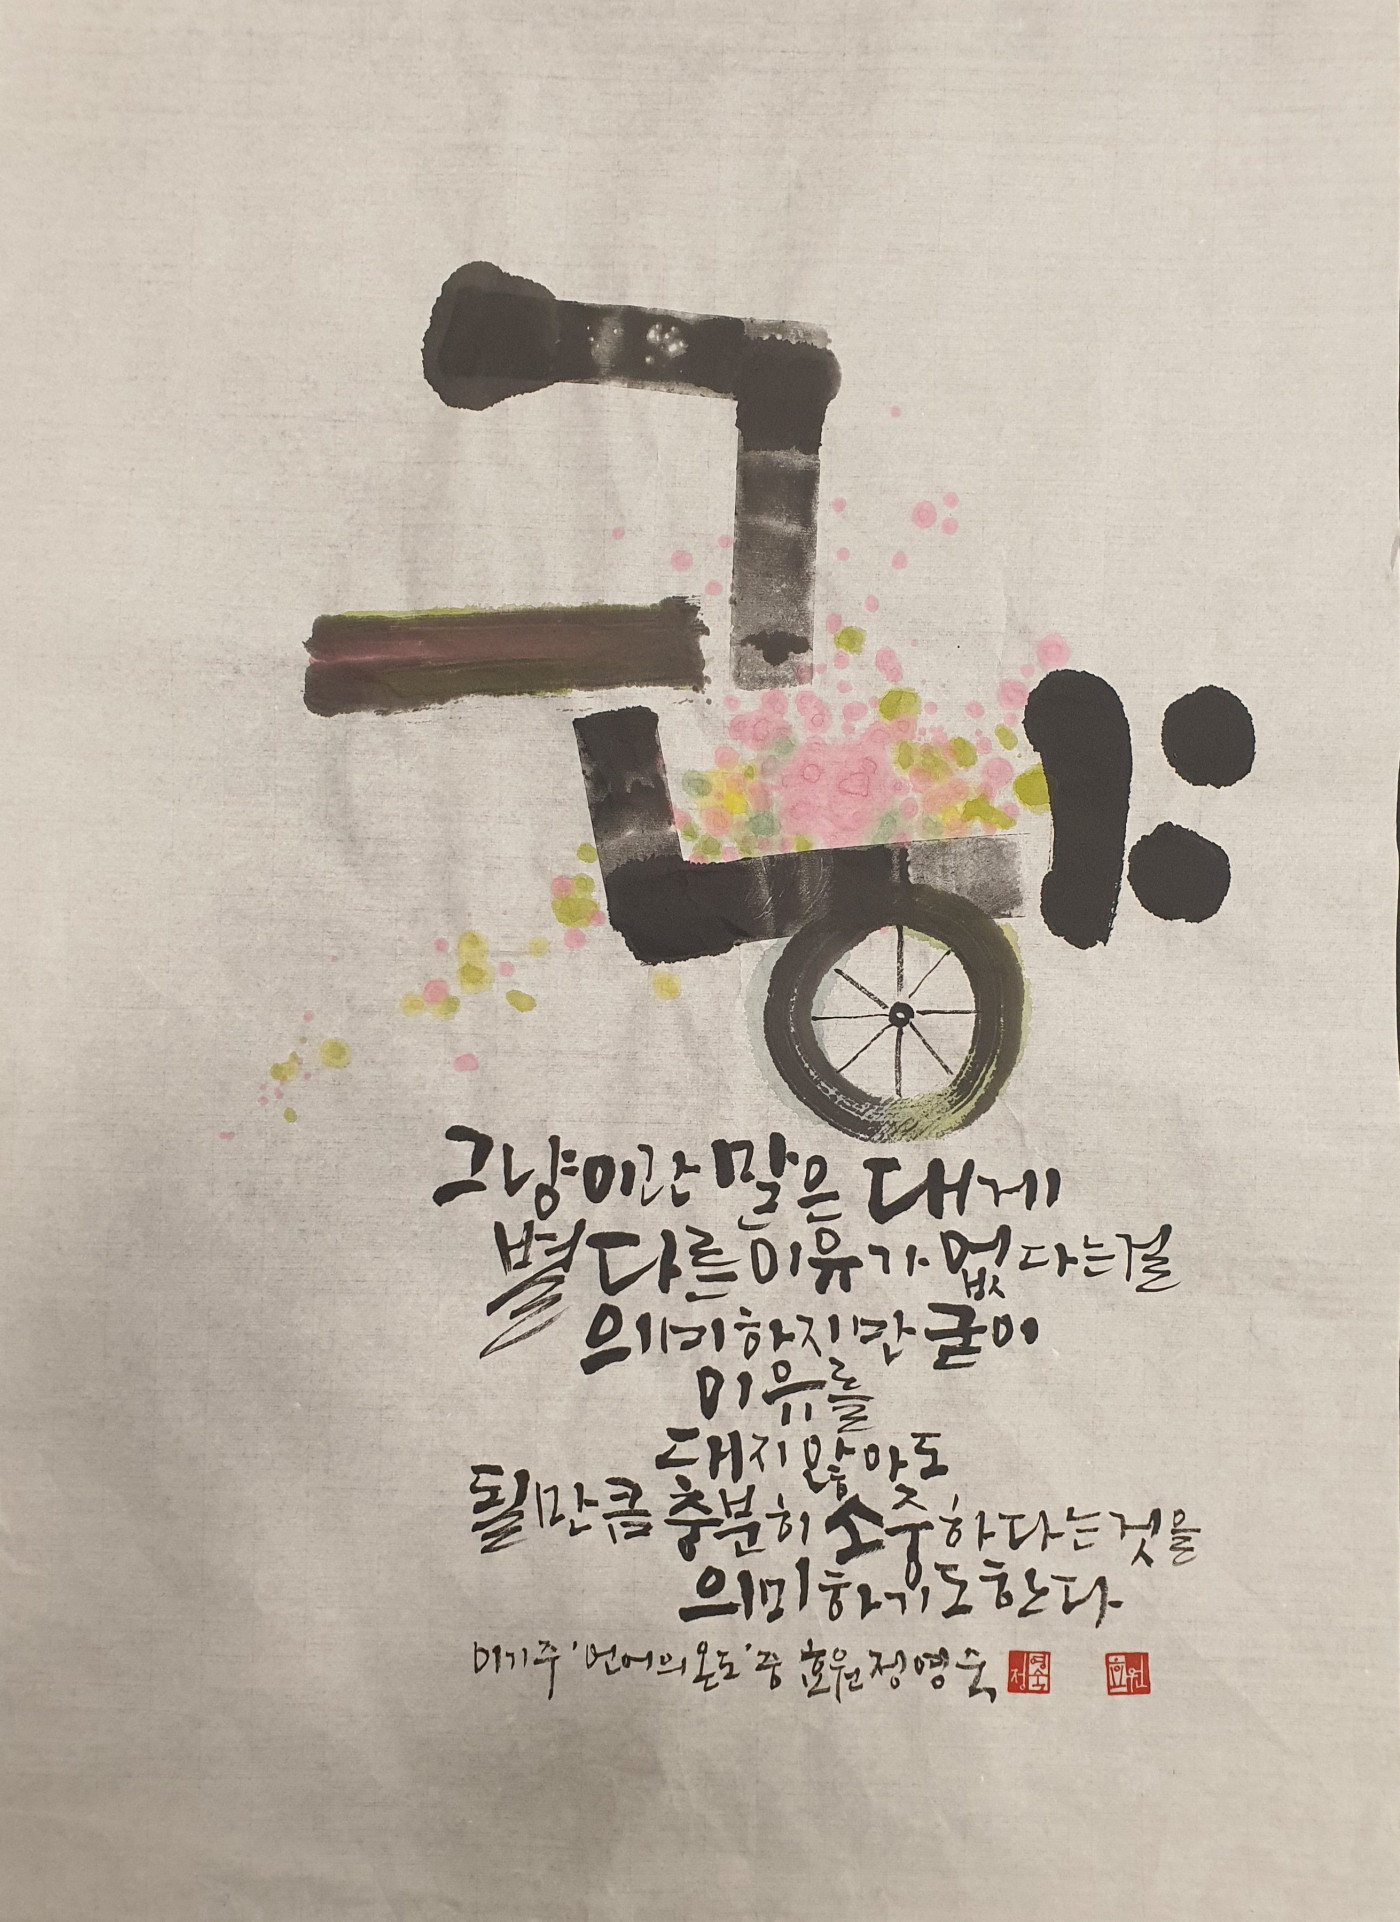 그냥
그냥이란 말은 대게
별 다른 이유가 없다는걸
의미하지만 굳이
이유를
대지 않아도
될만큼 충분히 소중하다는것을
의미하기도한다
이기주 '언어의 온도' 중 효원 정영숙
정영숙
효원